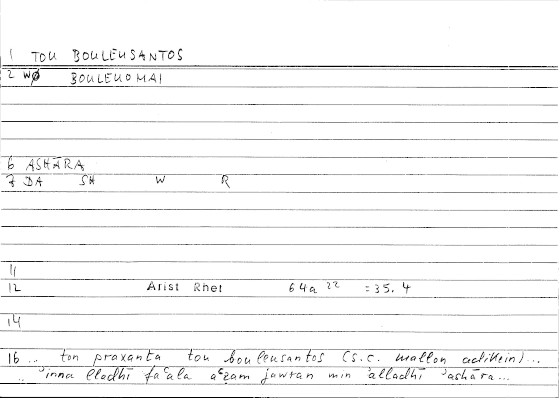 1 TOU BOULEUSANTOS
2 WØ BOULEUOMAI
6 ASHĀRA
7 DA SH W R
11
12 Arist Rhet 64a 22 =35.4
14
16 .. ton praxanta tou bouleusantos (s.c. mallon adikein)...
.. 'inna lladhī fa'ala a'ẓam jawran min 'alladhī 'ashāra...